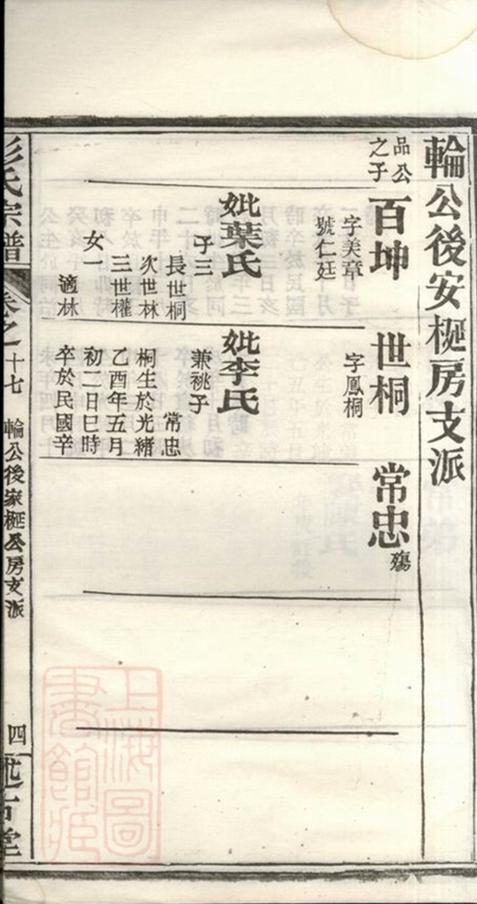 輪公後安梃房支派
品公
之子
百坤
字美章
號仁廷
妣葉氏
子三
長世桐
次世林
三世權
女一
適林
世桐
字鳳桐
妣李氏
兼祧子
常忠
桐生於光緒
乙酉年五月
初二日巳時
卒於民國辛
常忠
殤
彭氏宗譜
卷之十七
輪公後家梃公房支派
四
述古堂
上海圖
書館藏